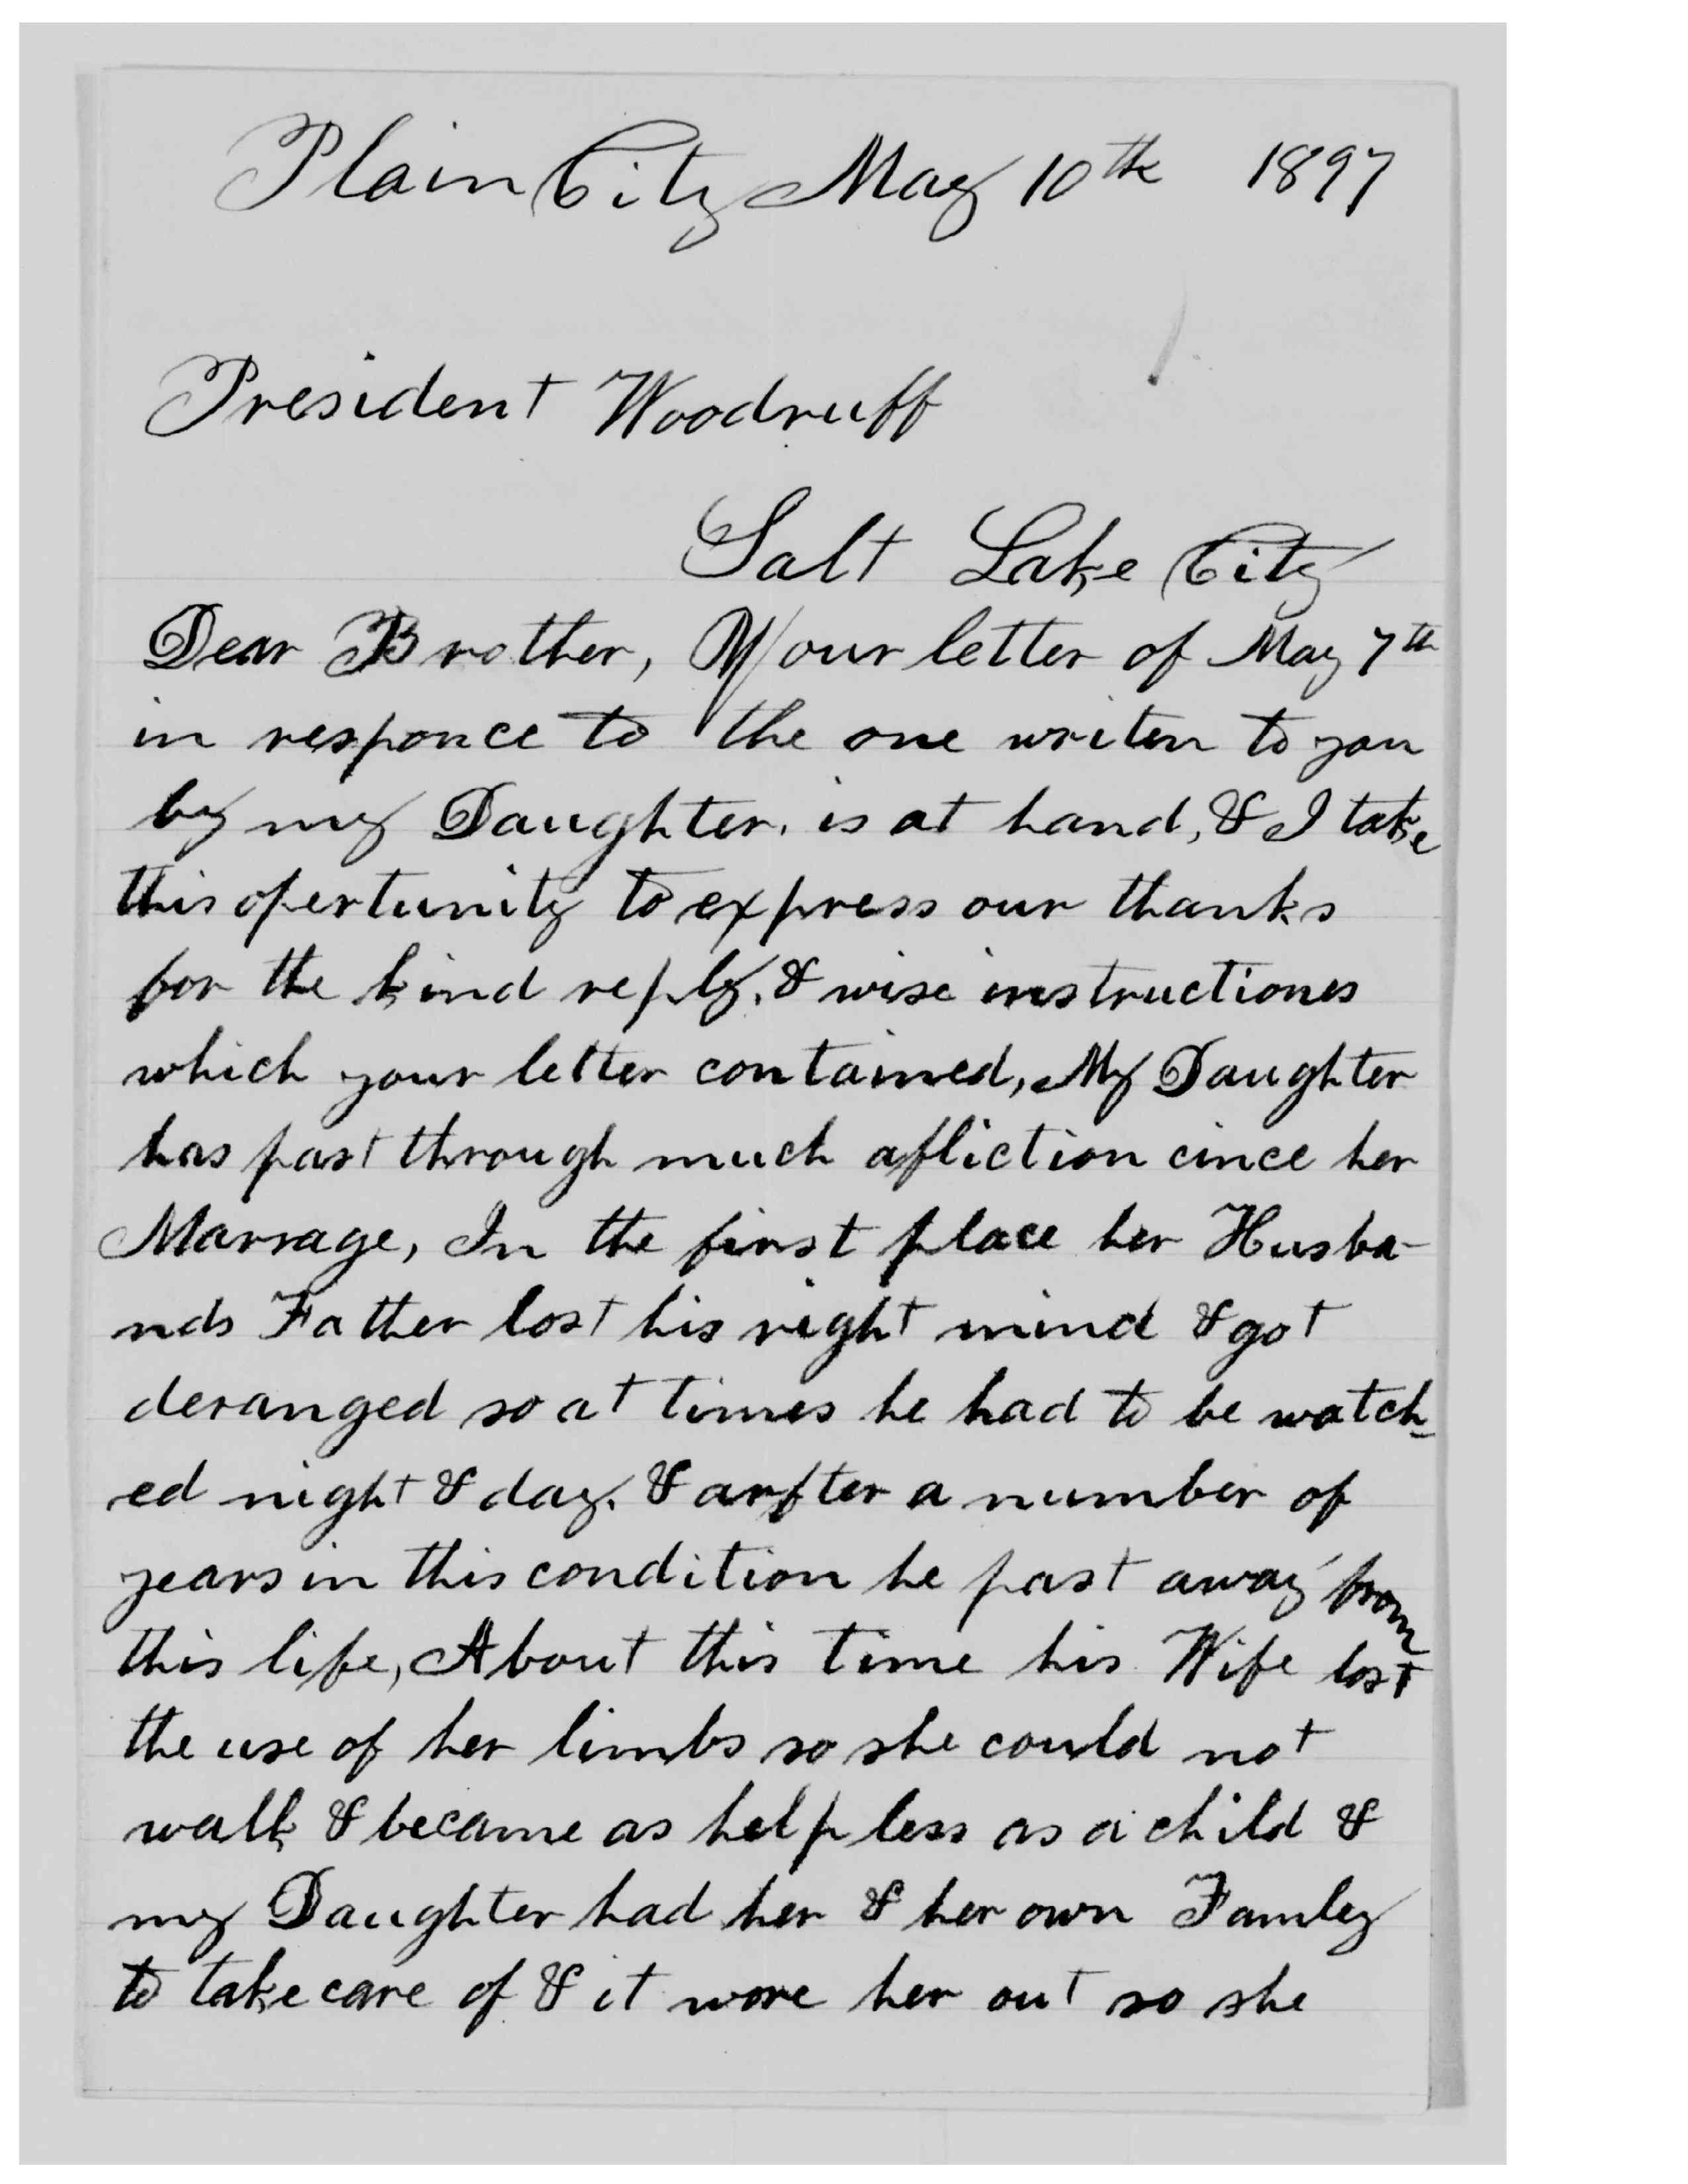 Plain City May 10th 1897
President Woodruff
Salt Lake City
Dear Brother, Your letter of May 7th
in responce to the one writen to you
by my Daughter. is at hand, & I take
this opertunity to express our thanks
for the kind reply. & wise instructiones
which your letter contained, My Daughter
has past through much afliction cince her
Marrage, In the first place her Husba-
nds Father lost his right mind & got
deranged so at times he had to be watch-
ed night & day. & arfter a number of
years in this condition he past away from
this life, About this time his Wife lost
the use of her limbs so she could not
walk & became as helpless as a child &
my Daughter had her & her own Famley
to take care of & it wore her out so she